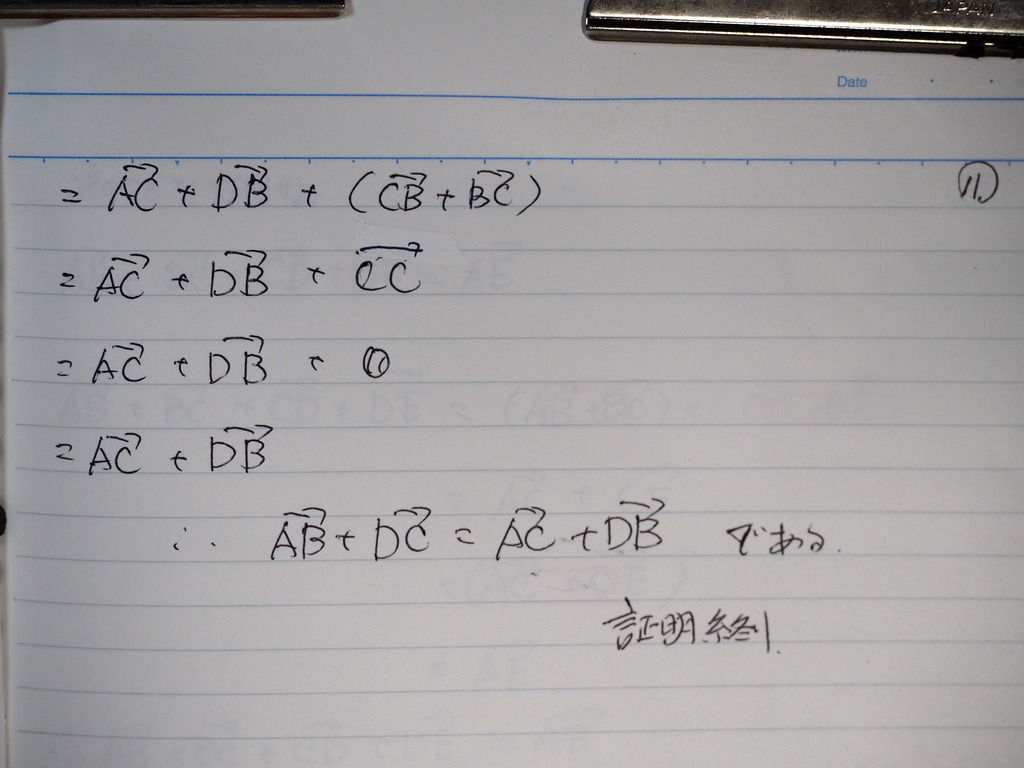 JAPAN
Date
= AC→ + DB→ + (CB→ + BC→) ⑪
= AC→ + DB→ + CC→
= AC→ + DB→ + 0
= AC→ + DB→
∴ AB→ + DC→ = AC→ + DB→ である.
証明終り.